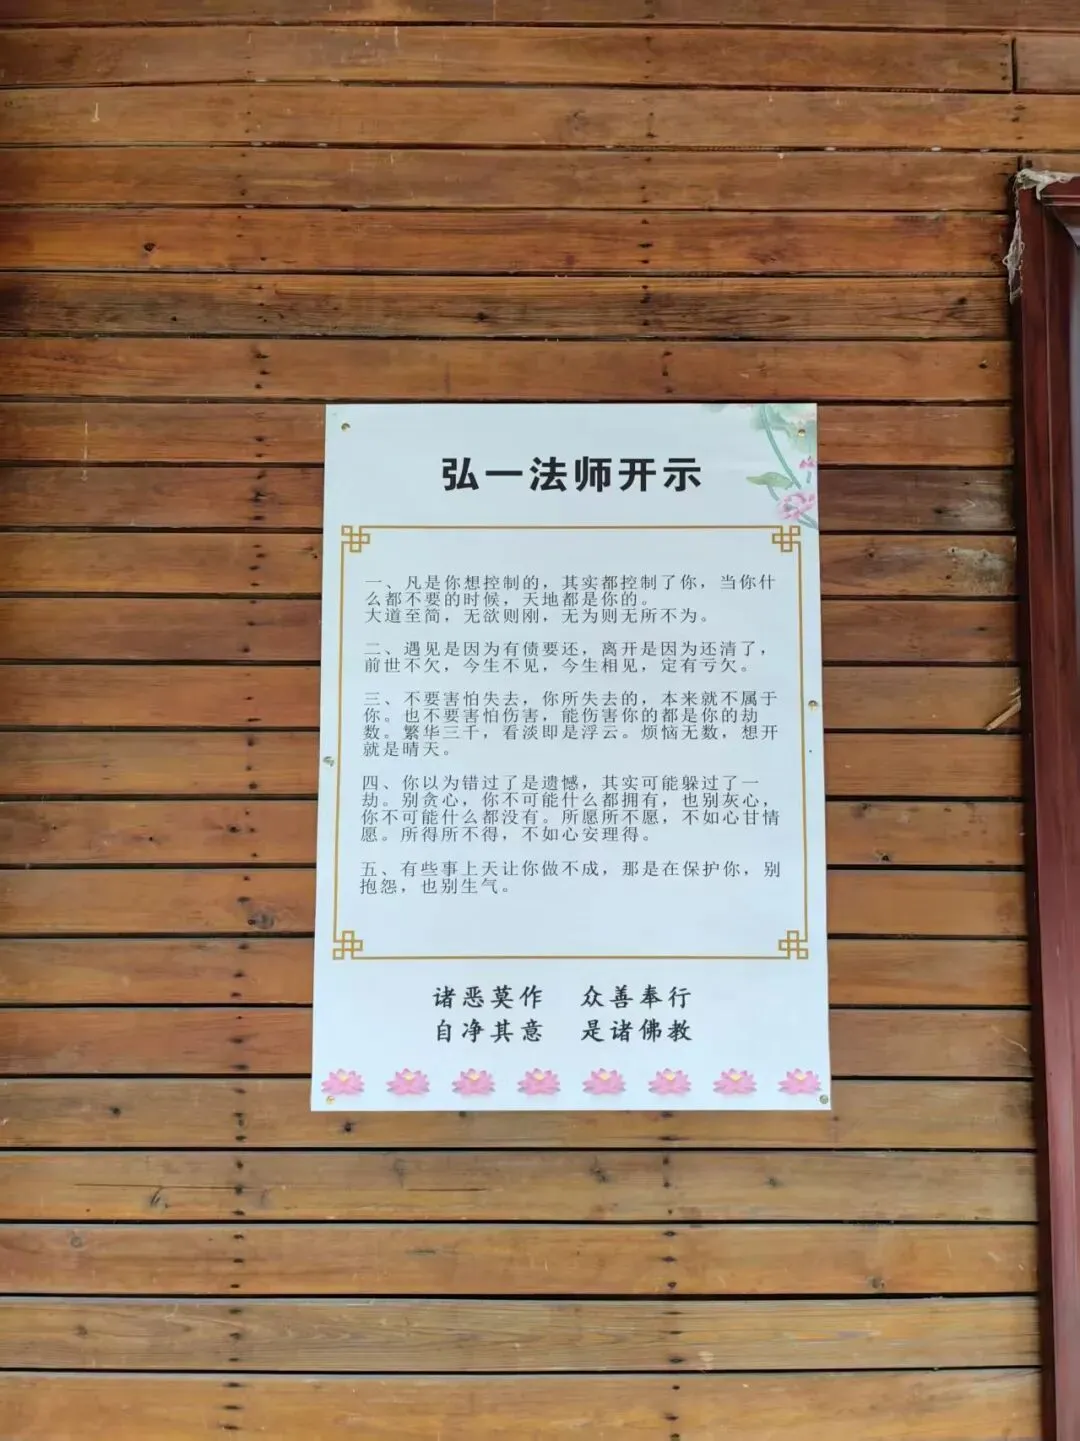 弘一法师开示
一、凡是你想控制的，其实都控制了你，当你什
么都不要的时候，天地都是你的。
大道至简，无欲则刚，无为则无所不为。
二、遇见是因为有债要还，离开是因为还清了，
前世不欠，今生不见，今生相见，定有亏欠。
三、不要害怕失去，你所失去的，本来就不属于
你。也不要害怕伤害，能伤害你的都是你的劫
数。繁华三千，看淡即是浮云。烦恼无数，想开
就是晴天。
四、你以为错过了是遗憾，其实可能躲过了一
劫。别贪心，你不可能什么都拥有，也别灰心，
你不可能什么都没有。所愿所不愿，不如心甘情
愿。所得所不得，不如心安理得。
五、有些事上天让你做不成，那是在保护你，别
抱怨，也别生气。
诸恶莫作　众善奉行
自净其意　是诸佛教